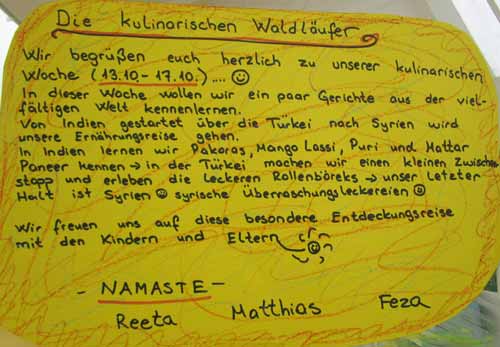 Die kulinarischen Waldläufer
Wir begrüßen euch herzlich zu unserer kulinarischen
Woche (13.10.-17.10.).... ☺
In dieser Woche wollen wir ein paar Gerichte aus der viel-
fältigen Welt kennenlernen.
Von Indien gestartet über die Türkei nach Syrien wird
unsere Ernährungsreise gehen.
In Indien lernen wir Pakoras, Mango Lassi, Puri und Mattar
Paneer kennen → in der Türkei machen wir einen kleinen Zwischen
stopp und erleben die leckeren Rollenböreks → unser letzter
Halt ist Syrien ☺ syrische Überraschungsleckereien ☺
Wir freuen uns auf diese besondere Entdeckungsreise
mit den Kindern und Eltern ☺
- NAMASTE -
Reeta Matthias Feza